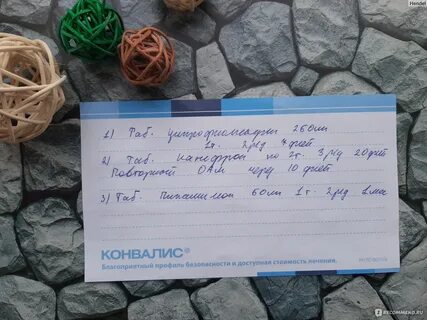 Hendel
1) Таб. ципрофлоксацин 250мг
1т. 2р/д 7 дней
2) Таб. Канефрон по 2т. 3р/д 20 дней
Повторный ОАм через 10 дней
3) Таб. 1т. 2р/д
КОНВАЛИС®
Благоприятный профиль безопасности и доступная стоимость лечения.
IRECOMMEND.RU